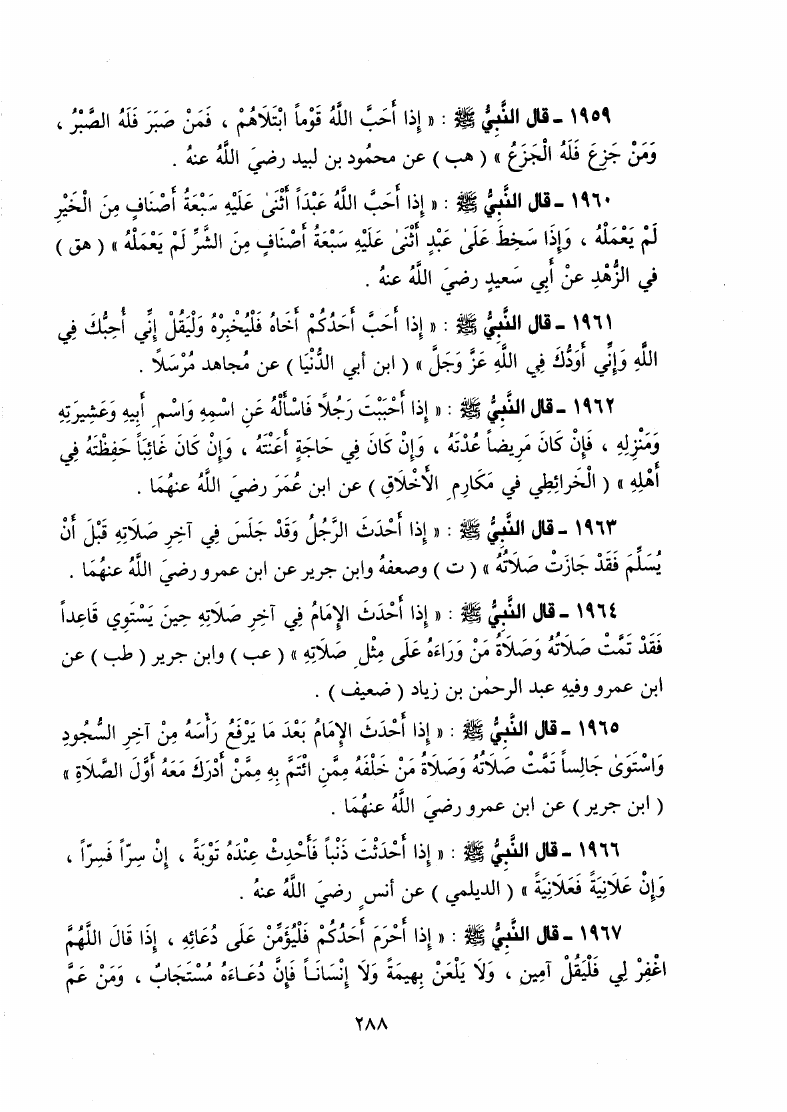 ١٩٥٩ ـ قال النَّبِيُّ ﷺ : « إِذا أَحَبَّ اللَّهُ قَوْماً ابْتَلَاهُمْ ، فَمَنْ صَبَرَ فَلَهُ الصَّبْرُ ،
وَمَنْ جَزِعَ فَلَهُ الْجَزَعُ » ( هب ) عن محمُود بن لبيد رضيَ اللَّهُ عنهُ .
١٩٦٠ ـ قال النَّبِيُّ ﷺ : « إِذا أَحَبَّ اللَّهُ عَبْدَاً أَثْنَىٰ عَلَيْهِ سَبْعَةُ أَصْنَافٍ مِنَ الْخَيْرِ
لَمْ يَعْمَلْهُ ، وَإِذَا سَخِطَ عَلَىٰ عَبْدٍ أَثْنَىٰ عَلَيْهِ سَبْعَةُ أَصْنَافٍ مِنَ الشَّرِّ لَمْ يَعْمَلْهُ » ( هق )
في الزُّهْدِ عنْ أَبِي سَعيدٍ رضيَ اللَّهُ عنهُ .
١٩٦١ ـ قال النَّبِيُّ ﷺ : « إِذا أَحَبَّ أَحَدُكُمْ أَخَاهُ فَلْيُخْبِرْهُ وَلْيَقُلْ إِنِّي أُحِبُّكَ فِي
اللَّهِ وَإِنِّي أَوَدُّكَ فِي اللَّهِ عَزَّ وَجَلَّ » ( ابن أبي الدُّنْيَا ) عن مُجاهد مُرْسَلاً .
١٩٦٢ ـ قال النَّبِيُّ ﷺ : « إِذا أَحْبَبْتَ رَجُلاً فَاسْأَلْهُ عَنِ اسْمِهِ وَاسْمِ أَبِيهِ وَعَشِيرَتِهِ
وَمَنْزِلِهِ ، فَإِنْ كَانَ مَرِيضاً عُدْتَهُ ، وَإِنْ كَانَ فِي حَاجَةٍ أَعَنْتَهُ ، وَإِنْ كَانَ غَائِبَاً حَفِظْتَهُ فِي
أَهْلِهِ » ( الْخَرائطِي في مَكَارِمِ الأَخْلَاقِ ) عن ابن عُمَرَ رضيَ اللَّهُ عنهُمَا .
١٩٦٣ ـ قال النَّبِيُّ ﷺ : « إِذا أَحْدَثَ الرَّجُلُ وَقَدْ جَلَسَ فِي آخِرِ صَلَاتِهِ قَبْلَ أَنْ
يُسَلِّمَ فَقَدْ جَازَتْ صَلَاتُهُ » ( ت ) وضعفهُ وابن جرير عن ابن عمرو رضيَ اللَّهُ عنهُمَا .
١٩٦٤ ـ قال النَّبِيُّ ﷺ : « إِذا أَحْدَثَ الإِمَامُ فِي آخِرِ صَلَاتِهِ حِينَ يَسْتَوِي قَاعِداً
فَقَدْ تَمَّتْ صَلَاتُهُ وَصَلَاةُ مَنْ وَرَاءَهُ عَلَى مِثْلِ صَلَاتِهِ » ( عب ) وابن جرير ( طب ) عن
ابن عمرو وفيه عبد الرحمٰن بن زياد ( ضعيف ) .
١٩٦٥ ـ قال النَّبِيُّ ﷺ : « إِذا أَحْدَثَ الإِمَامُ بَعْدَ مَا يَرْفَعُ رَأْسَهُ مِنْ آخِرِ السُّجُودِ
وَاسْتَوَىٰ جَالِساً تَمَّتْ صَلَاتُهُ وَصَلَاةُ مَنْ خَلْفَهُ مِمَّنِ ائْتَمَّ بِهِ مِمَّنْ أَدْرَكَ مَعَهُ أَوَّلَ الصَّلَاةِ »
( ابن جرير ) عن ابن عمرو رضيَ اللَّهُ عنهُمَا .
١٩٦٦ ـ قال النَّبِيُّ ﷺ : « إِذا أَحْدَثْتَ ذَنْباً فَأَحْدِثْ عِنْدَهُ تَوْبَةً ، إِنْ سِرّاً فَسِرّاً ،
وَإِنْ عَلَانِيَةً فَعَلَانِيَةً » ( الديلمي ) عن أنسٍ رضيَ اللَّهُ عنهُ .
١٩٦٧ ـ قال النَّبِيُّ ﷺ : « إِذا أَحْرَمَ أَحَدُكُمْ فَلْيُؤَمِّنْ عَلَى دُعَائِهِ ، إِذَا قَالَ اللَّهُمَّ
اغْفِرْ لِي فَلْيَقُلْ آمِين ، وَلَا يَلْعَنْ بِهِيمَةً وَلَا إِنْسَانَاً فَإِنَّ دُعَاءَهُ مُسْتَجَابٌ ، وَمَنْ عَمَّ
٢٨٨